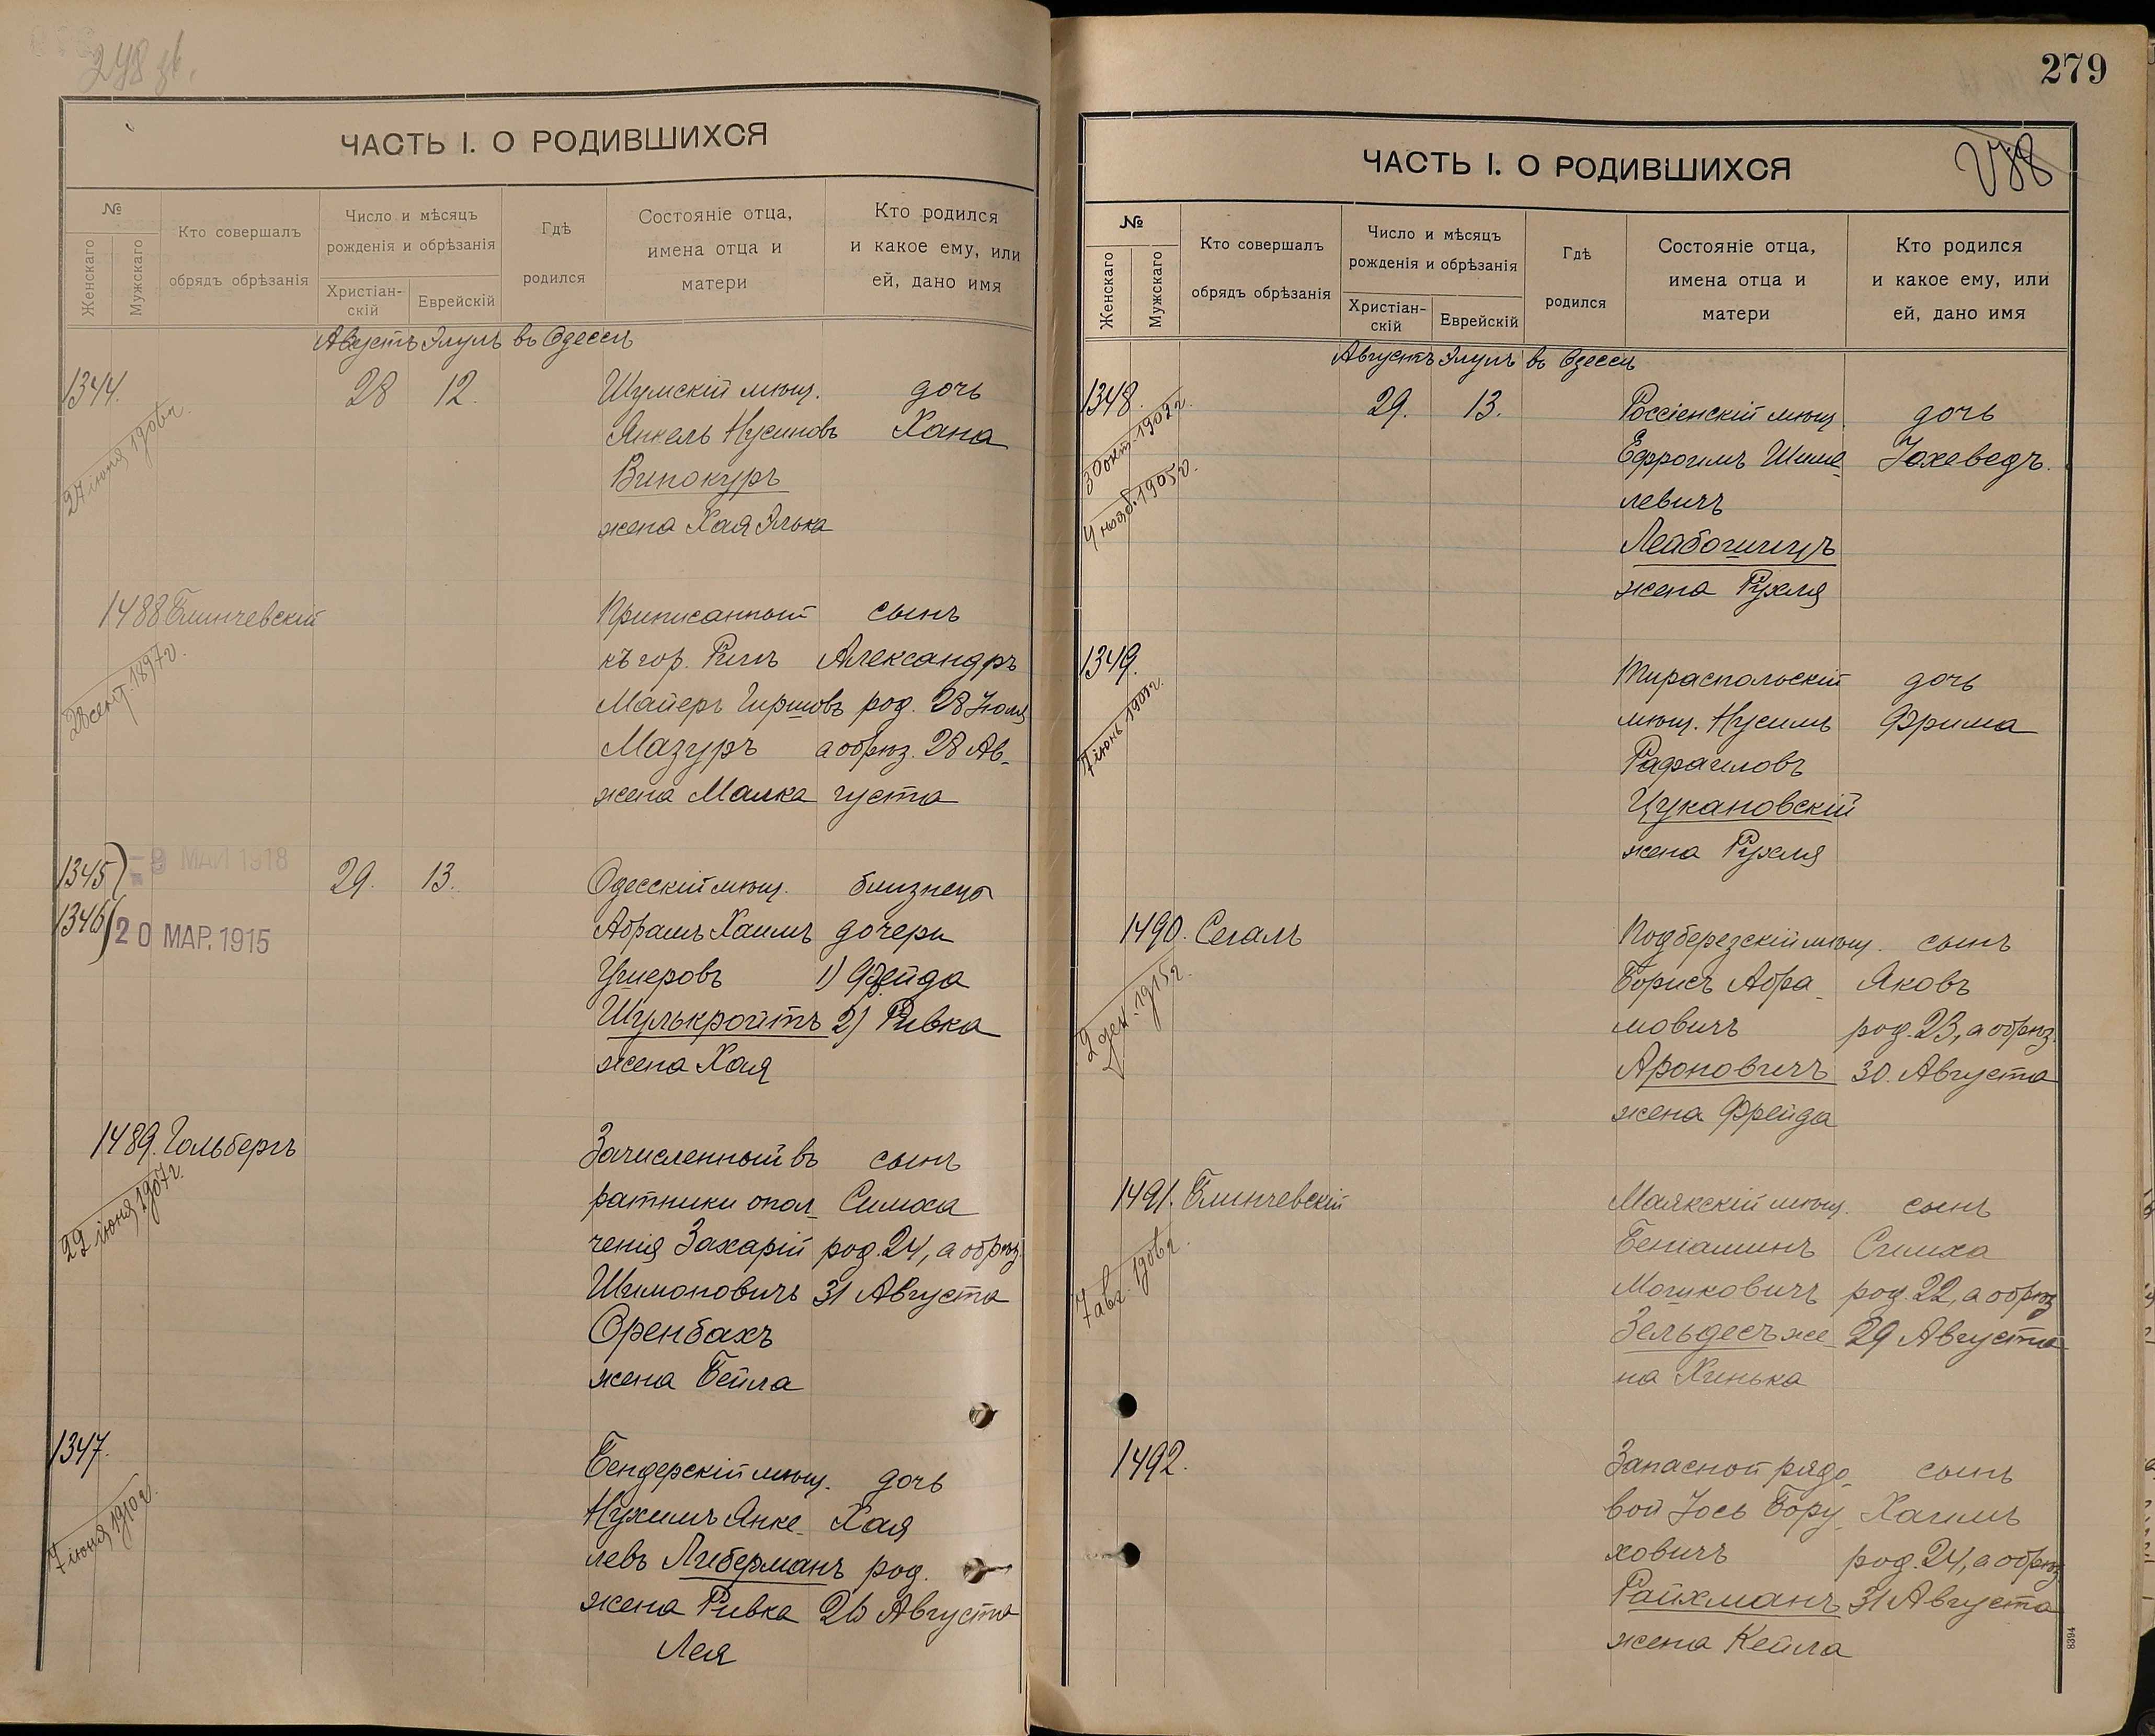 278 об.
ЧАСТЬ I. О РОДИВШИХСЯ
№
Женскаго
Мужскаго
Кто совершалъ
обрядъ обрѣзанія
Число и мѣсяцъ
рожденія и обрѣзанія
Христіан-
скій
Еврейскій
Гдѣ
родился
Состояніе отца,
имена отца и
матери
Кто родился
и какое ему, или
ей, дано имя
Августъ Элулъ въ Одессѣ
1344. 28 12. Шумскій мѣщ. дочь
27 іюня 1906г.
Янкель Нусиновъ Хана
Винокуръ
жена Хая Элька
1488 Блинчевскій Приписанный сынъ
28 сент. 1897г.
къ гор. Ригѣ Александръ
Майеръ Гиршовъ род. 28 Іюля
Мазуръ а обрѣз. 28 Ав-
жена Малка густа
1345 - 9 МАЙ 1918 29. 13. Одесскій мѣщ. близнецы
1346 20 МАР. 1915 Абрамъ Хаимъ дочери
Ушеровъ 1) Фрейда
Шулькройтъ 2) Ривка
жена Хая
1489. Гольбергъ Зачисленный въ сынъ
22 іюня 1907г.
ратники опол- Симха
ченія Захарій род. 24, а обрѣз.
Шимоновичъ 31 Августа
Оренбахъ
жена Бейла
1347. Бендерскій мѣщ. дочь
7 іюня 1910г.
Нухимъ Янке- Хая
левъ Либерманъ род.
жена Ривка 26 Августа
Лея
279
ЧАСТЬ I. О РОДИВШИХСЯ
№
Женскаго
Мужскаго
Кто совершалъ
обрядъ обрѣзанія
Число и мѣсяцъ
рожденія и обрѣзанія
Христіан-
скій
Еврейскій
Гдѣ
родился
Состояніе отца,
имена отца и
матери
Кто родился
и какое ему, или
ей, дано имя
Августъ Элулъ въ Одессѣ
1348. 29. 13. Россіенскій мѣщ. дочь
30 окт. 1902г.
4 нояб. 1905г.
Ефроимъ Шме- Іохеведъ.
левичъ
жена Рухля
1349. Тираспольскій дочь
7 іюнь
мѣщ. Нусимъ Фрима
Рафаиловъ
Цукановскій
жена Рухля
1490. Сегалъ Подберезскій мѣщ. сынъ
2 дек. 1915г.
Борисъ Абра- Яковъ
мовичъ род. 23, а обрѣз.
Ароновичъ 30. Августа
жена Фрейда
1491. Блинчевскій Маякскій мѣщ. сынъ
7 авг. 1906г.
Беніаминъ Симха
Мошковичъ род. 22, а обрѣз
Зельдесъ же- 29 Августа
на Хинька
1492. Запасной рядо- сынъ
вой Іось Бору- Хаимъ
ховичъ род. 24, а обрѣз
Райхманъ 31 Августа
жена Кейла
8394